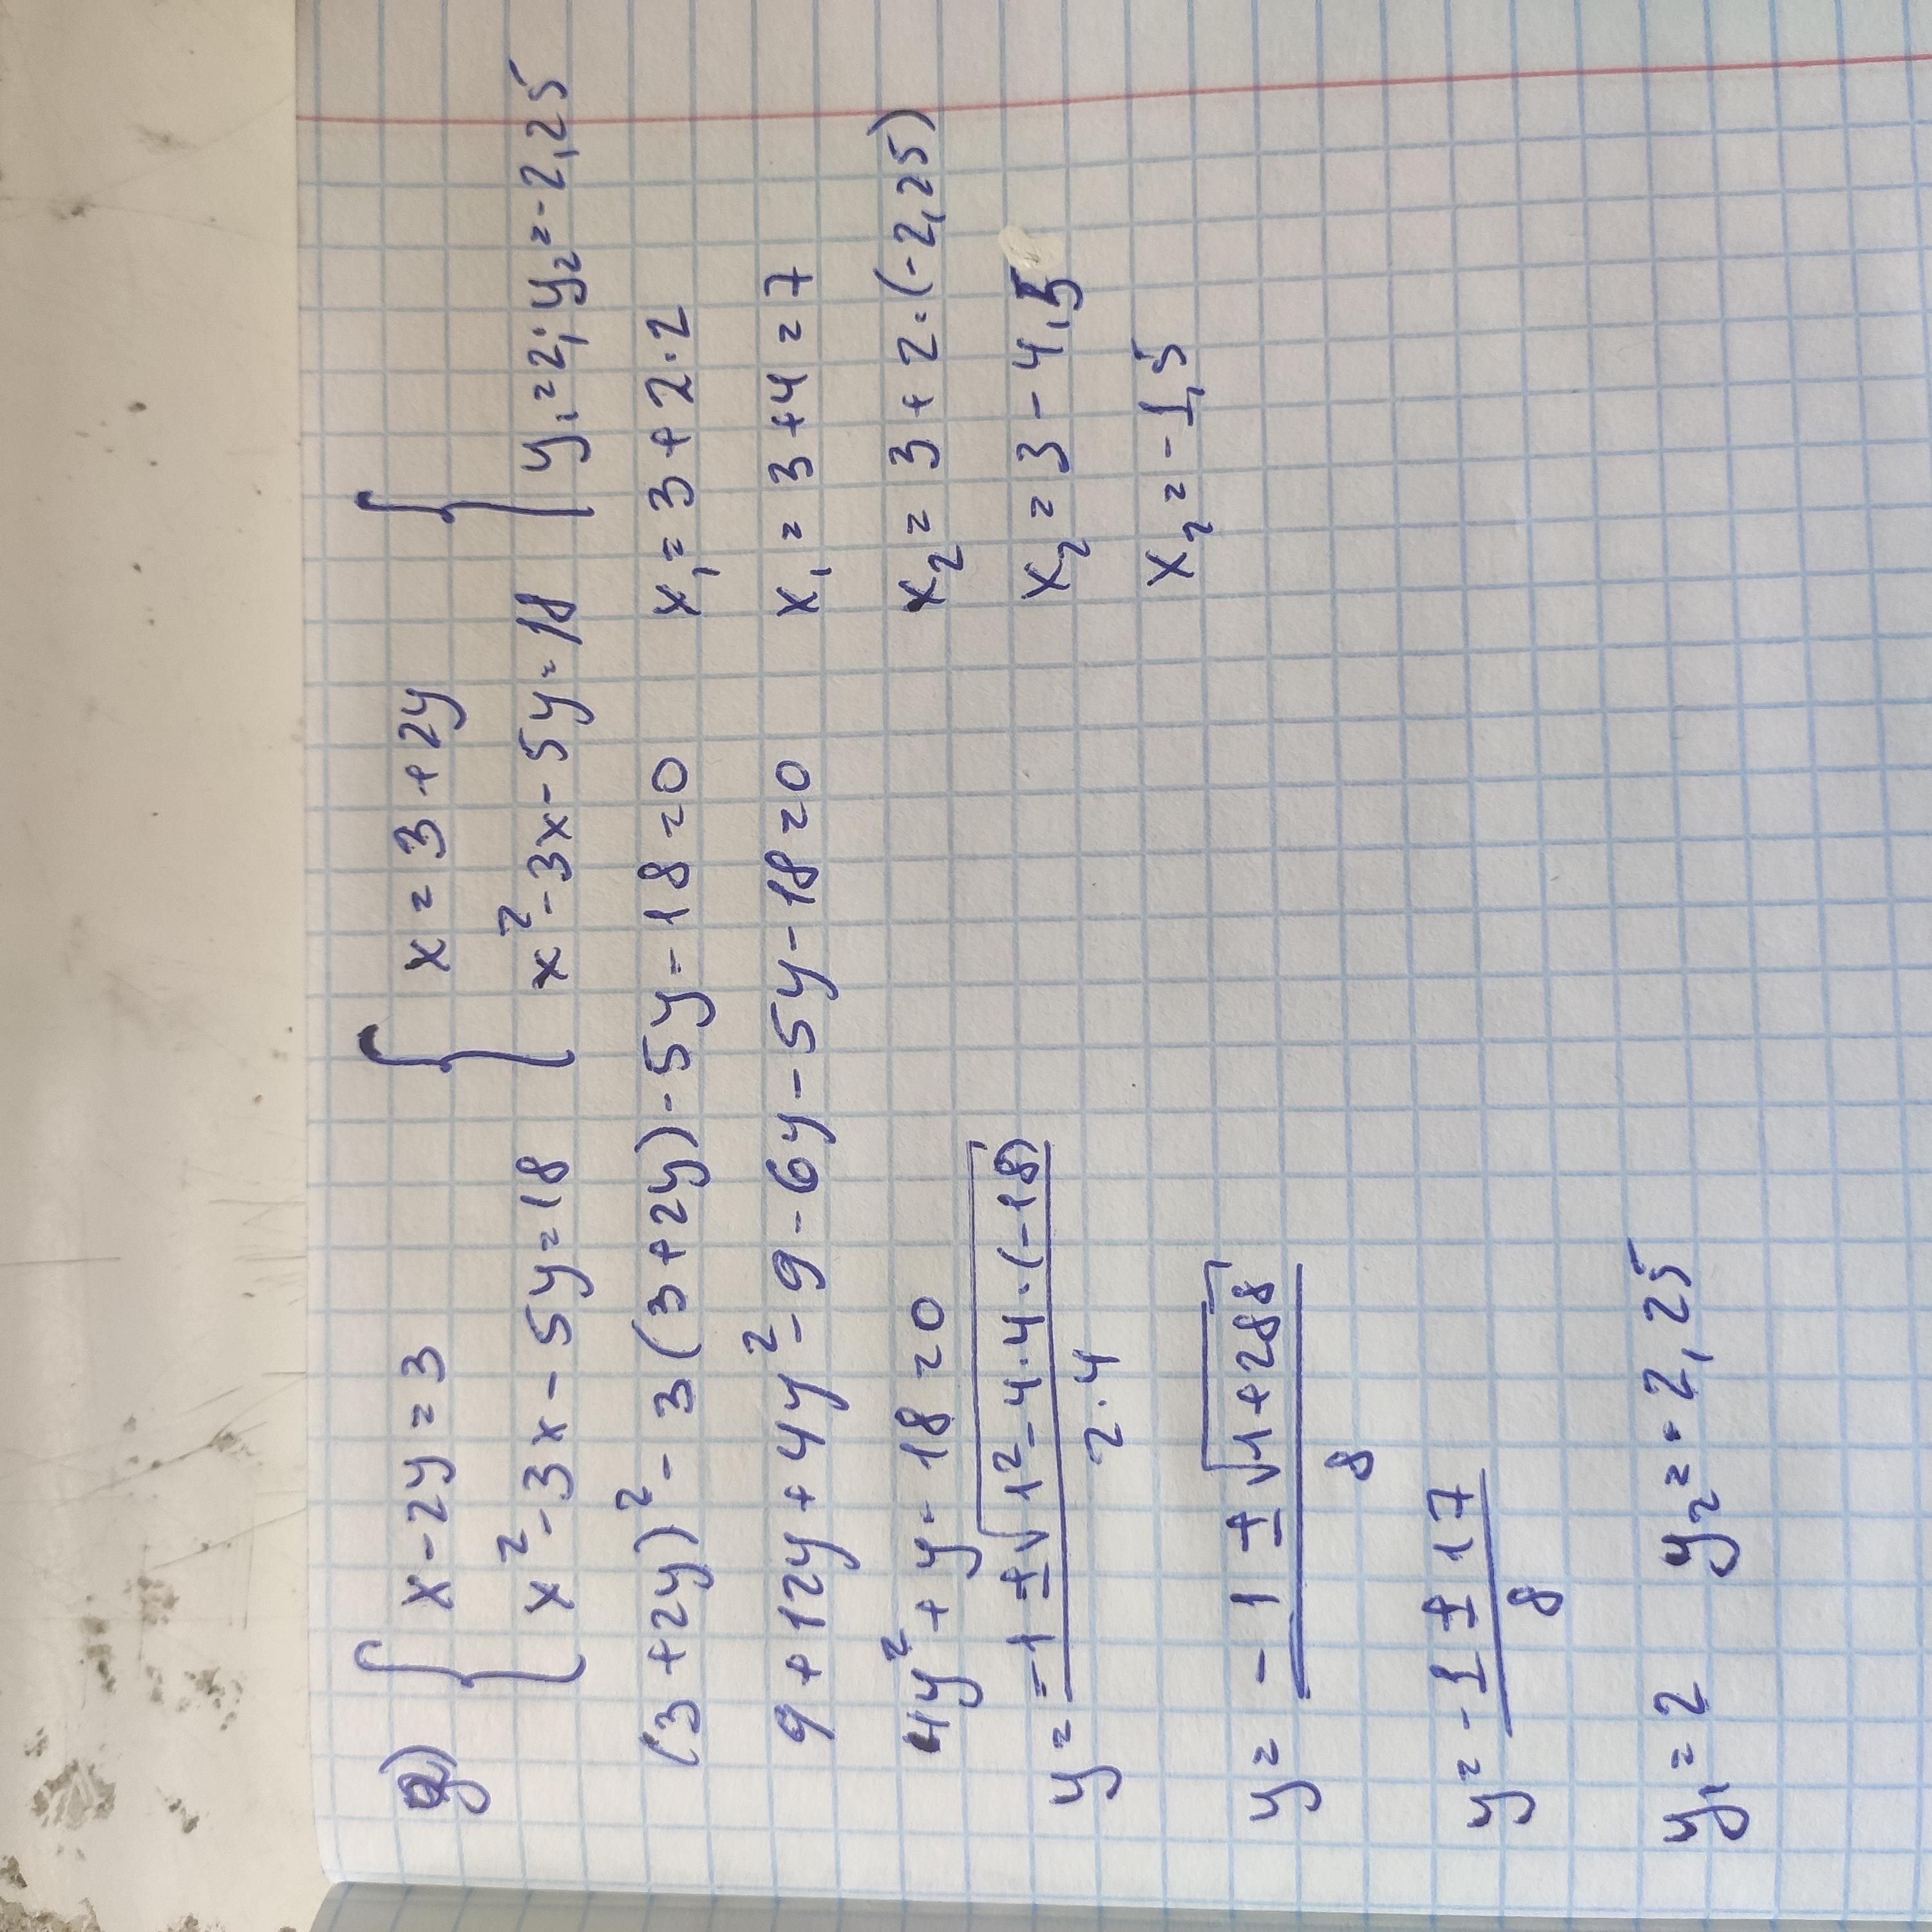 д) { x - 2y = 3 { x = 3 + 2y {
x² - 3x - 5y = 18 x² - 3x - 5y = 18 y₁ = 2; y₂ = -2,25
(3 + 2y)² - 3(3 + 2y) - 5y - 18 = 0 x₁ = 3 + 2·2
9 + 12y + 4y² - 9 - 6y - 5y - 18 = 0 x₁ = 3 + 4 = 7
4y² + y - 18 = 0 x₂ = 3 + 2·(-2,25)
y = (-1 ± √(1² - 4·4·(-18))) / (2·4) x₂ = 3 - 4,5
y = (-1 ± √(1 + 288)) / 8 x₂ = -1,5
y = (-1 ± 17) / 8
y₁ = 2 y₂ = -2,25